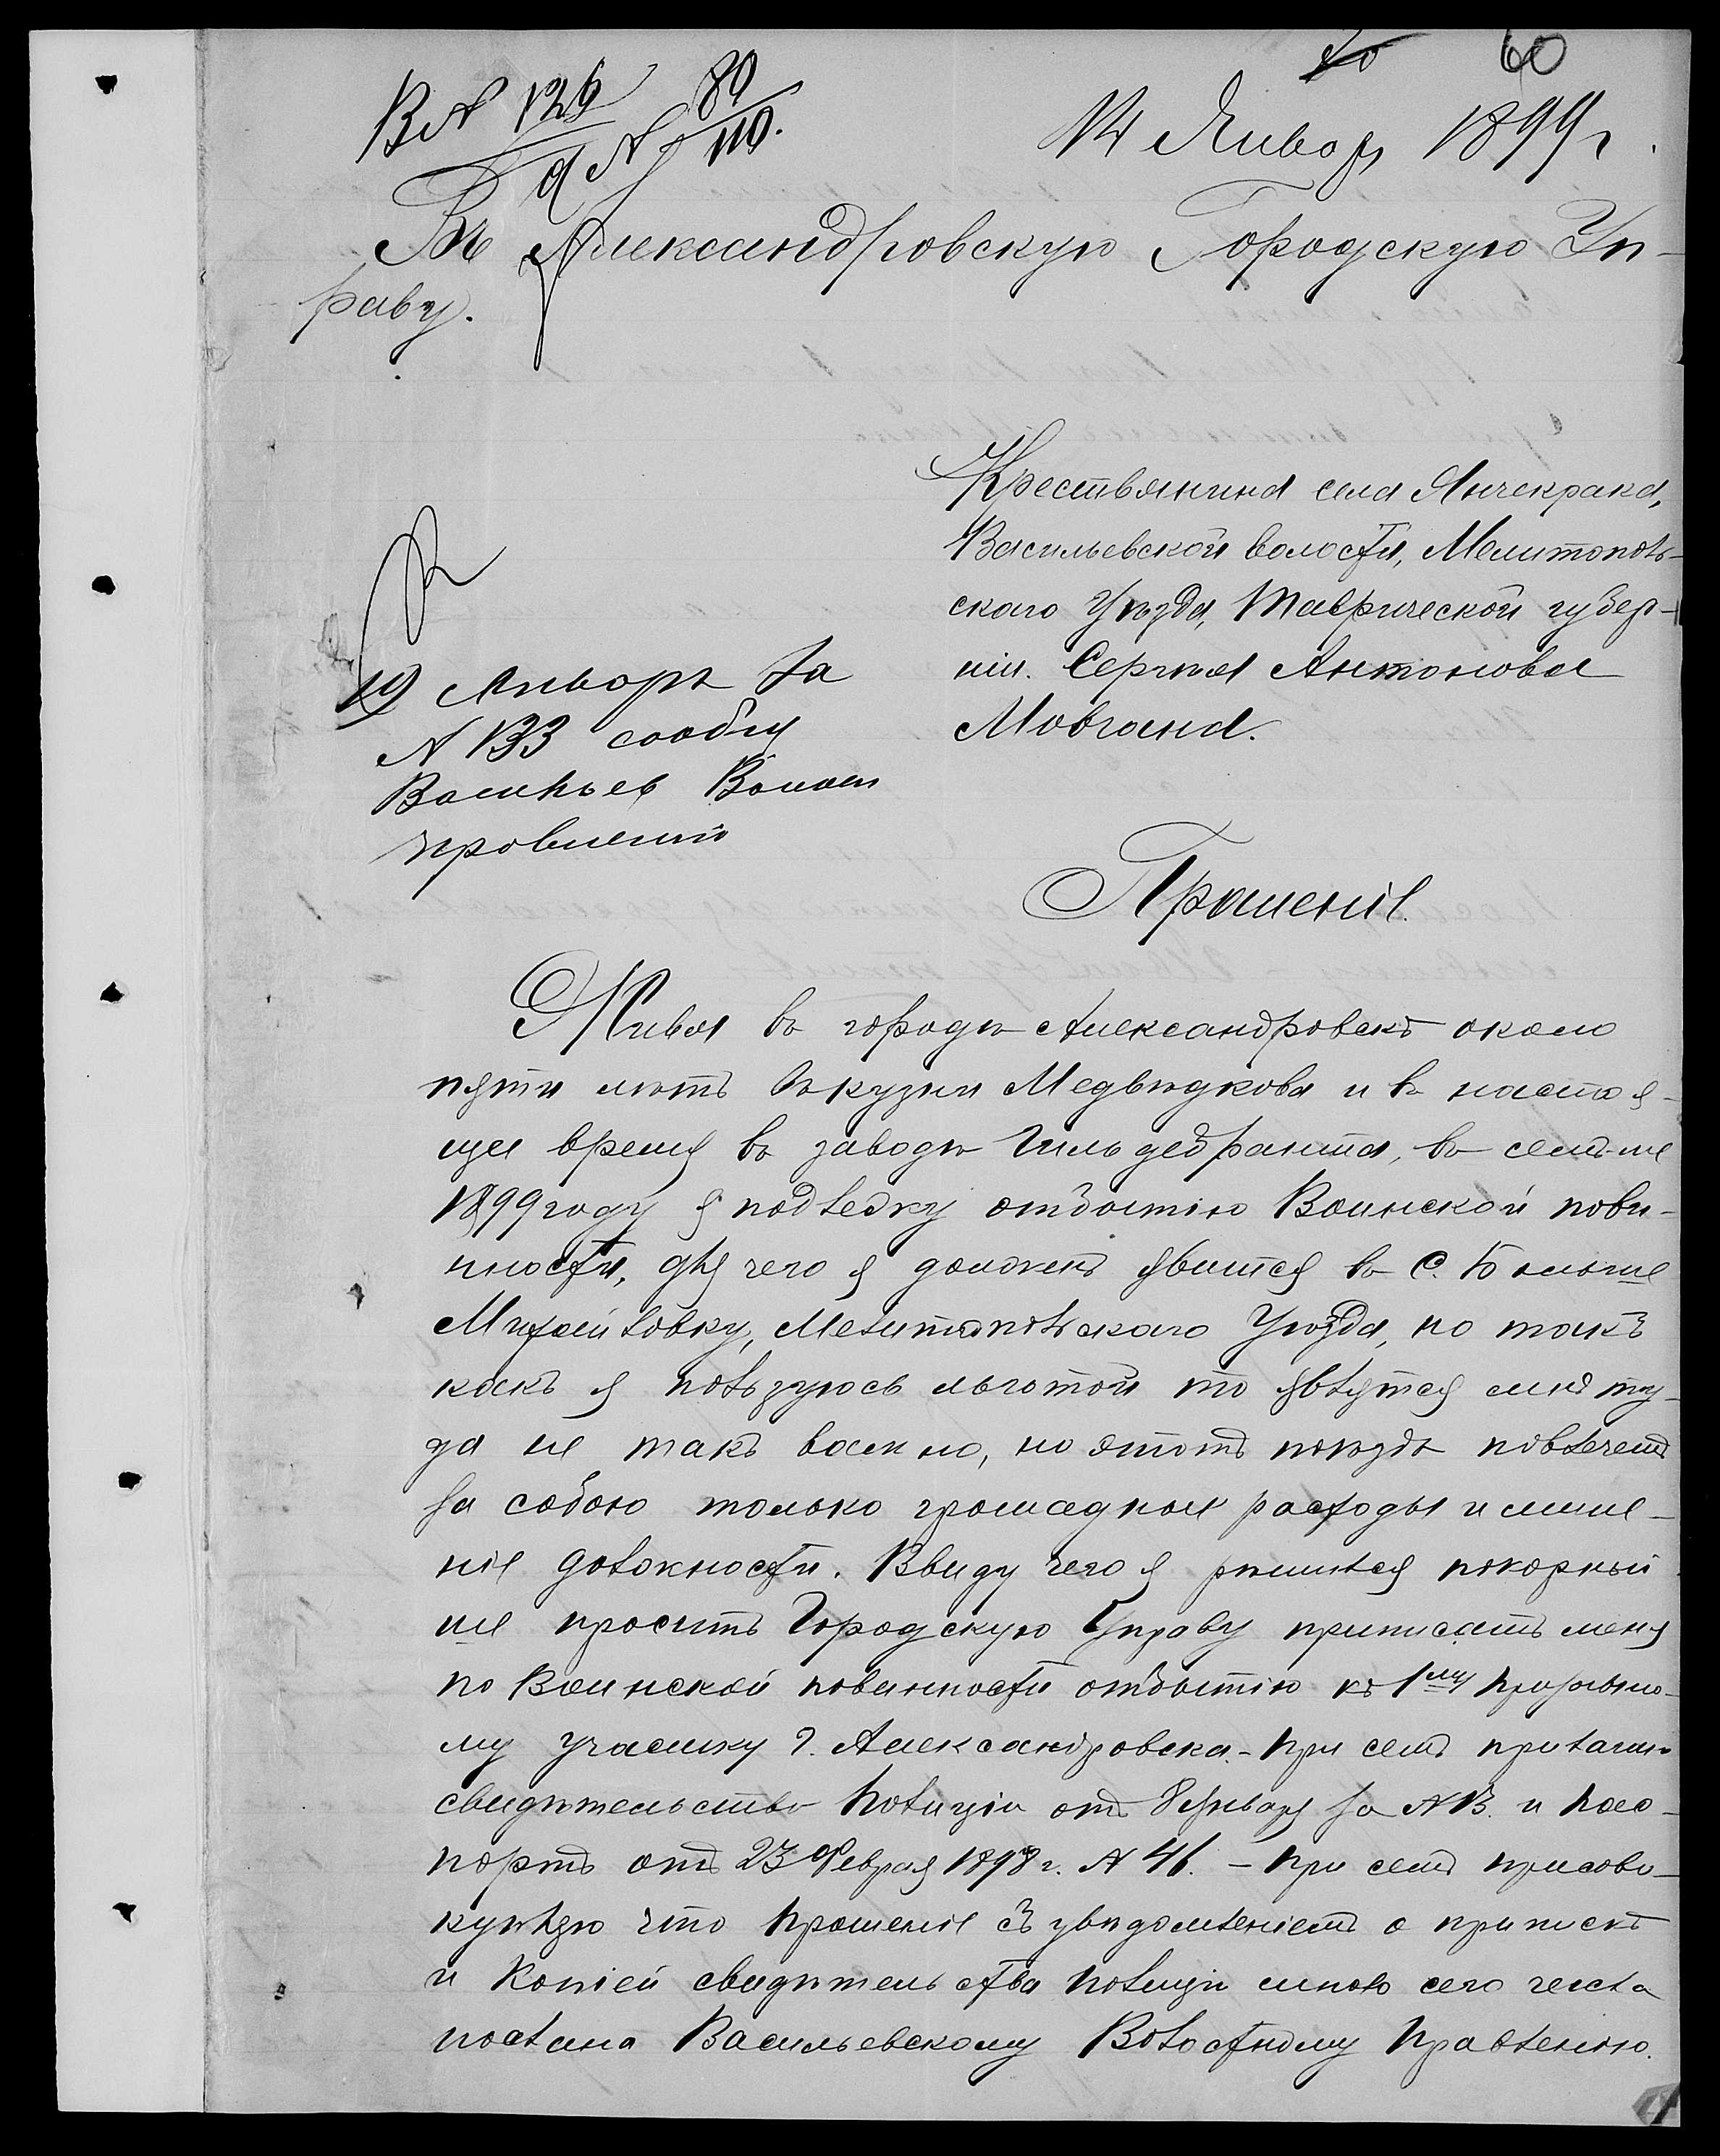 60
В № 126 89/110.
14 Январ 1899 г.
Въ Александровскую Городскую Уп-
раву.
Крестьянина села Янчекрака,
Васильевской волости, Мелитополь-
скаго Уѣзда, Таврической губер-
ніи. Сергѣя Антонова
Мовчана.
19 Января за
№ 133 сообщ
Васильев Волост
правленію
Прошеніе.
Живя въ городѣ Александровскѣ около
пяти лѣтъ въ кузни Медвѣдкова и в настоя-
щее время въ заводѣ Гильдебранта, въ семъ-же
1899 году я подлежу отбытію Воинской пови-
нности, для чего я долженъ явится въ С. Больше
Михайловку, Мелитопольскаго Уѣзда, но такъ
какъ я пользуюсь льготой то являтся мнѣ ту-
да не такъ важно, но этотъ поѣздъ повлечетъ
за собою только громадные расходы и лише-
ніе должности. Ввиду чего я рѣшился покорнѣй
ше просить Городскую Управу приписать меня
по Воинской повинности отбытію къ 1му призывно-
му участку г. Александровска. - При семъ прилагаю
свидѣтельство полиціи отъ 8 Январ за № 13. и пас-
портъ отъ 23 Феврая 1898 г. № 46. - При семъ присово-
купляю что прошеніе съ увѣдомленіемъ о припискѣ
и Копіей свидѣтельства полиціи мною сего числа
послана Васильевскому Волостному Правленію.